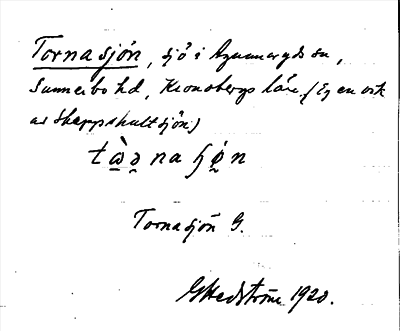 Tornasjön, sjö i Agunnaryds sn,
Sunnerbo hd, Kronobergs län. (Eg en vik
av Skeppshultsjön)
Tornasjön G.
GHedström 1920.